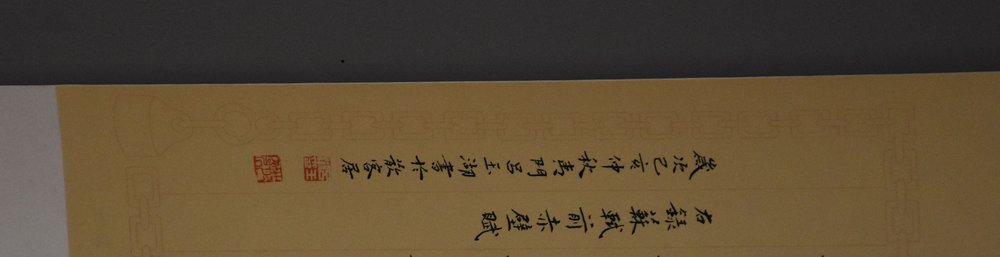 右錄蘇軾前赤壁賦
歲次己亥仲秋青門呂玉湖書於散客居